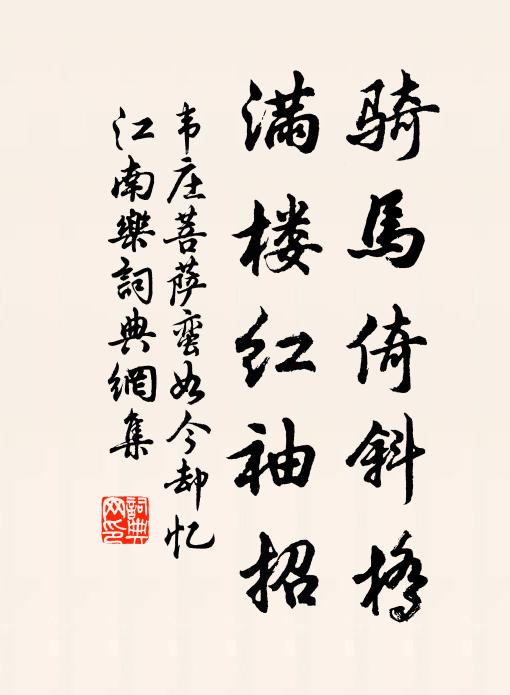 骑馬倚斜橋
满楼红袖招
韦庄菩萨蛮如今却忆
江南樂詞典網集
詞典
网印